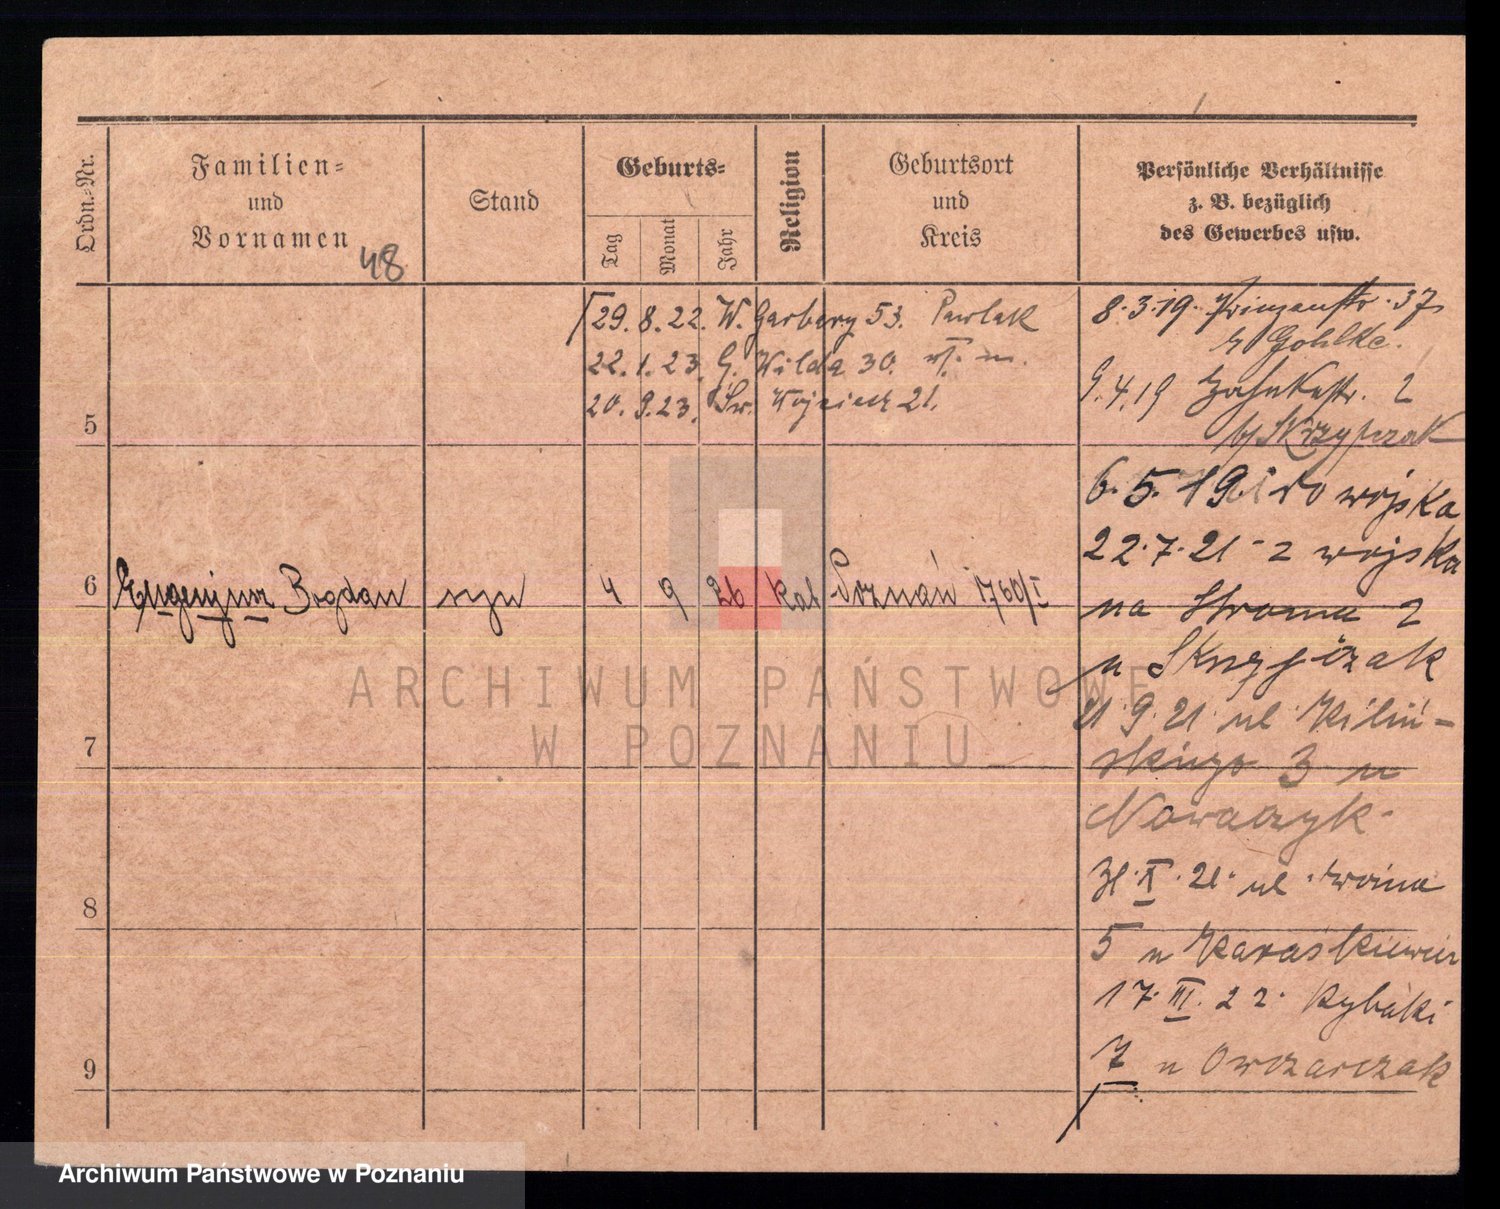 Ordn.-Nr.
Familien-
und
Vornamen
48
Stand
Geburts-
Tag
Monat
Jahr
Religion
Geburtsort
und
Kreis
Persönliche Verhältnisse
z. B. bezüglich
des Gewerbes usw.
29. 8. 22. W. Garbary 53. Pawlak
22. 1. 23. G. Wilda 30.
20. 9. 23. Św. Wojciech 21.
5
6 Eugenjusz Bogdan syn 4 9 26 kat Poznań 1760/I
7
8
9
8. 3. 19. Prinzenstr. 37
b/ Gohlke.
9. 4. 19 2
b/ Skrzypczak
6. 5. 19 do wojska
22. 7. 21 - z wojska
na Stroma 2
u Skrzypczak
21 9. 21 ul Kiliń-
skiego 3 u
Nowaczyk
31. X. 21. ul.
5 u Karaśkiewicz
17. III. 22. Rybaki
7 u Owczarczak
ARCHIWUM PAŃSTWOWE
W POZNANIU
Archiwum Państwowe w Poznaniu